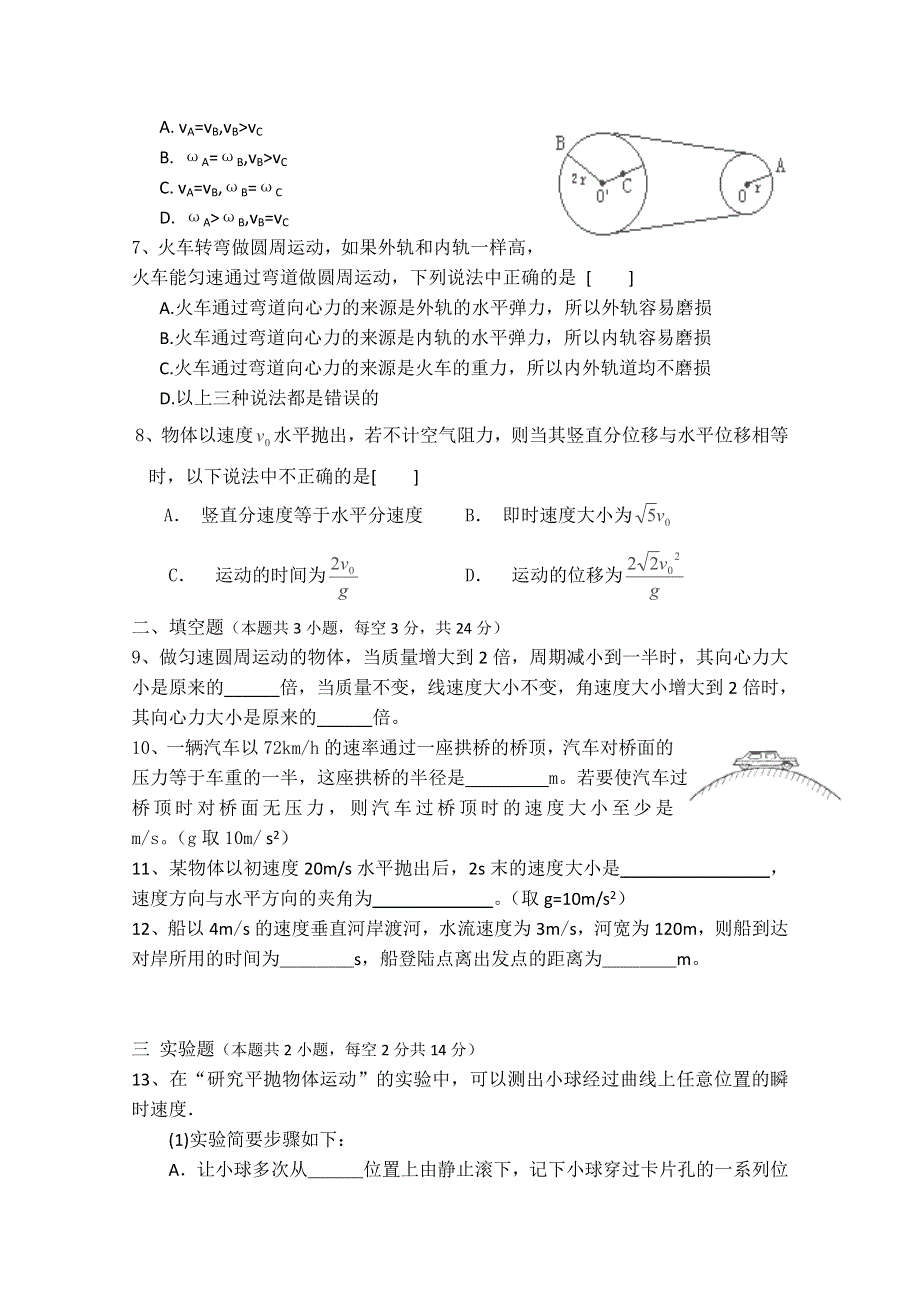 A. vA=vB,vB>vC
B. ωA=ωB,vB>vC
C. vA=vB,ωB=ωC
D. ωA>ωB,vB=vC
B
2r
C
O'
A
O
r
7、火车转弯做圆周运动，如果外轨和内轨一样高，
火车能匀速通过弯道做圆周运动，下列说法中正确的是 [　　]
A.火车通过弯道向心力的来源是外轨的水平弹力，所以外轨容易磨损
B.火车通过弯道向心力的来源是内轨的水平弹力，所以内轨容易磨损
C.火车通过弯道向心力的来源是火车的重力，所以内外轨道均不磨损
D.以上三种说法都是错误的
8、物体以速度v₀水平抛出，若不计空气阻力，则当其竖直分位移与水平位移相等
时，以下说法中不正确的是[　　]
A． 竖直分速度等于水平分速度 B． 即时速度大小为√5v₀
C． 运动的时间为2v₀/g D． 运动的位移为2√2v₀²/g
二、填空题（本题共3小题，每空3分，共24分）
9、做匀速圆周运动的物体，当质量增大到2倍，周期减小到一半时，其向心力大
小是原来的______倍，当质量不变，线速度大小不变，角速度大小增大到2倍时，
其向心力大小是原来的______倍。
10、一辆汽车以72km/h的速率通过一座拱桥的桥顶，汽车对桥面的
压力等于车重的一半，这座拱桥的半径是_________m。若要使汽车过
桥顶时对桥面无压力，则汽车过桥顶时的速度大小至少是
m/s。（g取10m/ s²）
11、某物体以初速度20m/s水平抛出后，2s末的速度大小是________________，
速度方向与水平方向的夹角为_____________。（取g=10m/s²）
12、船以4m/s的速度垂直河岸渡河，水流速度为3m/s，河宽为120m，则船到达
对岸所用的时间为________s，船登陆点离出发点的距离为________m。
三 实验题（本题共2小题，每空2分共14分）
13、在“研究平抛物体运动”的实验中，可以测出小球经过曲线上任意位置的瞬
时速度．
(1)实验简要步骤如下：
A．让小球多次从______位置上由静止滚下，记下小球穿过卡片孔的一系列位